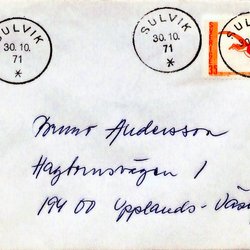 SULVIK
30.10.
71
SULVIK
30.10.
71
SULVIK
30.10
71
Bruno Andersson
Hagtornsvägen 1
194 00 Upplands-Väs